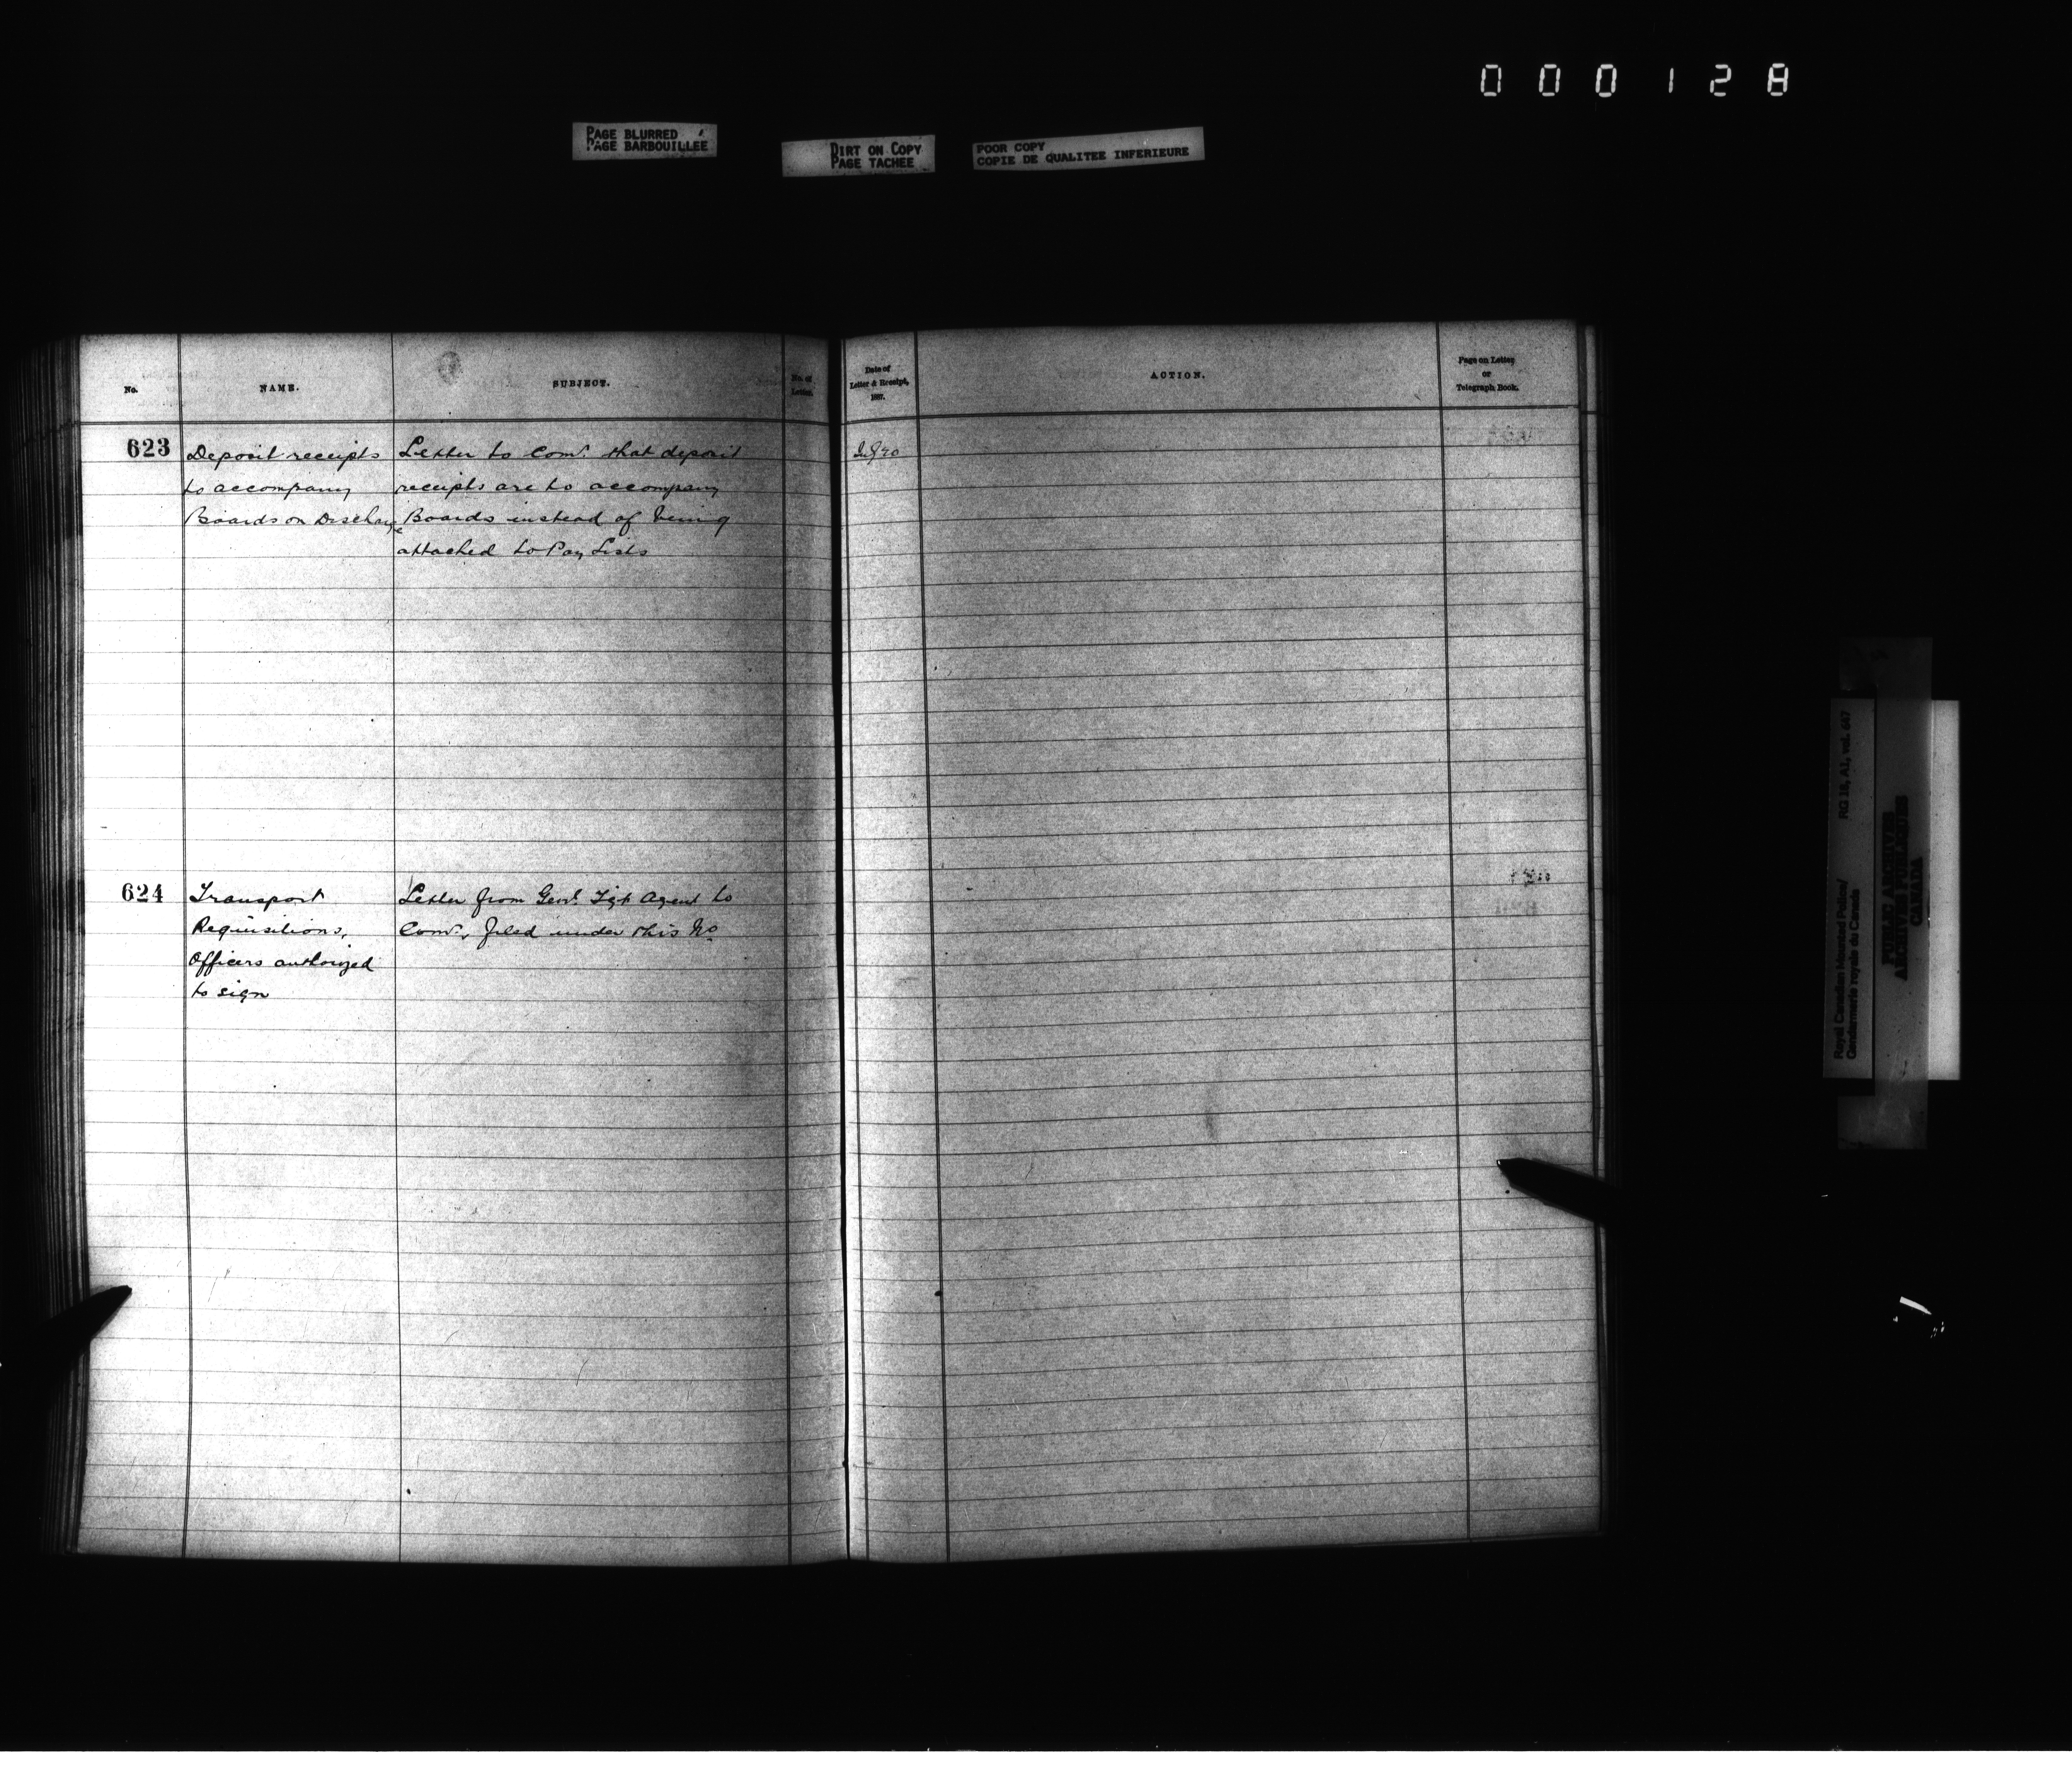 000128
PAGE BLURRED
PAGE BARBOUILLEE
DIRT ON COPY
PAGE TACHEE
POOR COPY
COPIE DE QUALITEE INFERIEURE
No.
NAME.
SUBJECT.
No. of
Letter.
Date of
Letter & Receipt,
1887.
ACTION.
Page on Letter
or
Telegraph Book.
623
Deposit receipts
to accompany
Boards on Discharge
Letter to Comr. that deposit
receipts are to accompany
Boards instead of being
attached to Pay Lists
624
Transport
Requisitions,
Officers authorized
to sign
Letter from Genl. Tgt Agent to
Comr., filed under this No
Royal Canadian Mounted Police/
Gendarmerie royale du Canada
RG 18, A1, vol.
PUBLIC ARCHIVES
ARCHIVES PUBLIQUES
CANADA